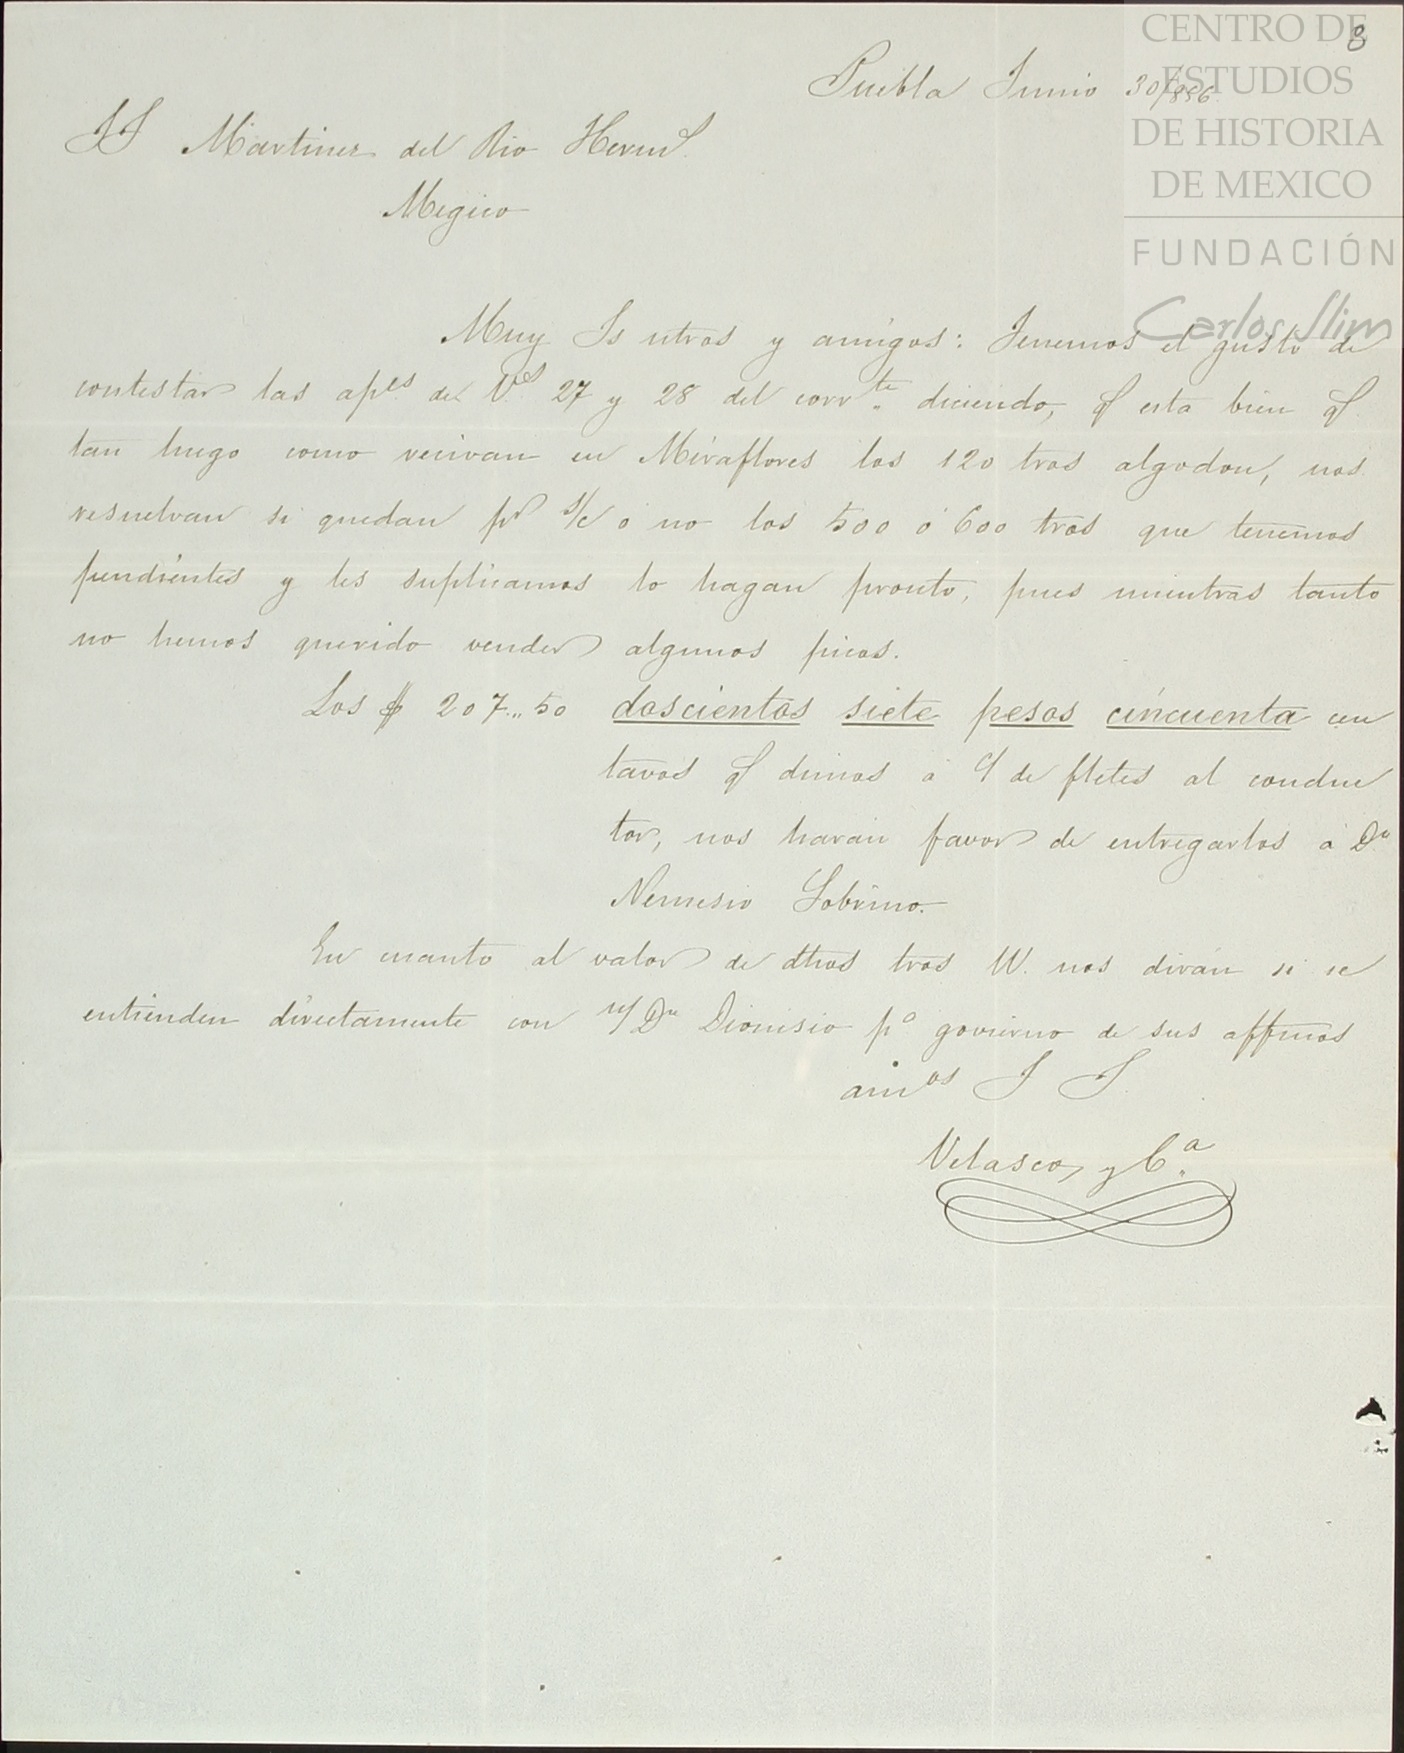 CENTRO DE
ESTUDIOS
DE HISTORIA
DE MEXICO
FUNDACIÓN
Carlos Slim
8
Puebla Junio 30/856.
SS Martinez del Rio Herms.
Megico
Muy Ss ntros y amigos: Tenemos el gusto de
contestar las apes. de Vs. 27 y 28 del corrte. diciendo, q esta bien q
tan luego como recivan en Miraflores los 120 tros algodon, nos
resuelvan si quedan pr s/c o no los 500 ó 600 tros que tenemos
pendientes y les suplicamos lo hagan pronto, pues mientras tanto
no hemos querido vender algunos picos.
Los $ 207.,50 doscientos siete pesos cincuenta cen
tavos q dimos a c/ de fletes al conduc
tor, nos harán favor de entregarlos á Dn
Nemesio Sobrino.
En cuanto al valor de dhos tros VV. nos dirán si se
entienden directamente con n/ Dn Dionisio pa govierno de sus affmos
amos S S.
Velasco, y Ca.